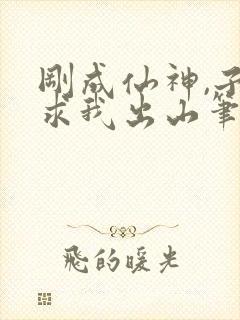 刚成仙神,子
求我出山笔
飛的暖光